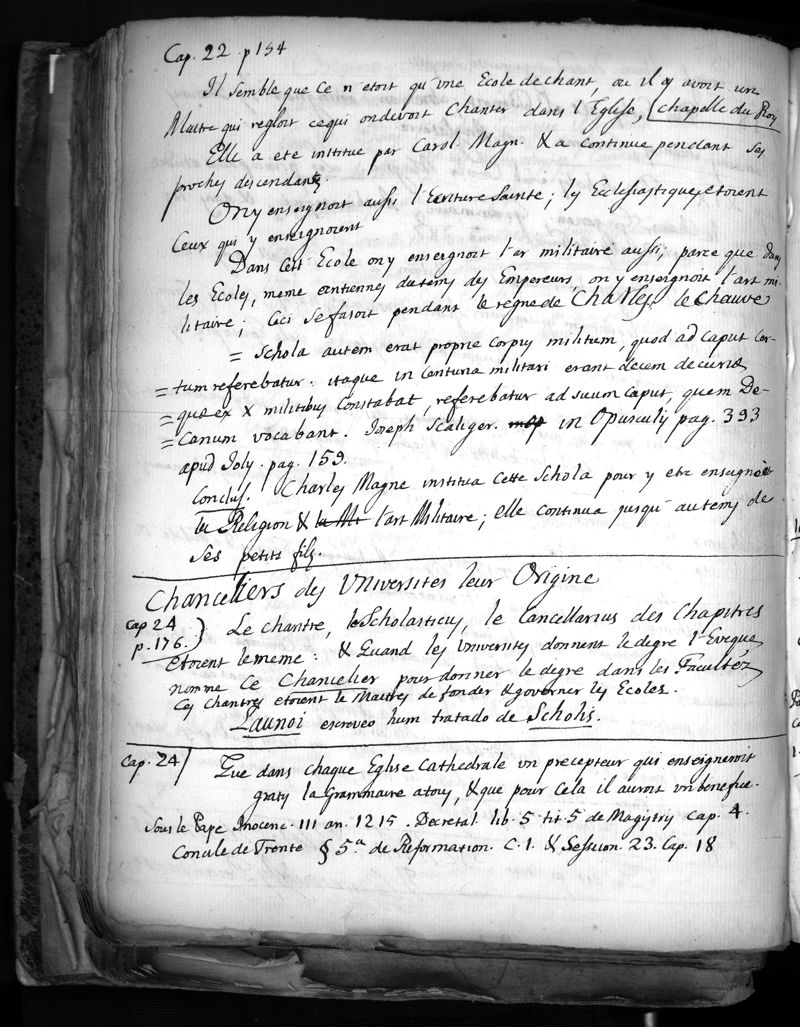 Cap. 22 p 154
Il semble que ce n'etoit qu'une Ecole de chant, ou il y avoit un
Maitre qui regloit ce qui on devoit Chanter dans l'Eglise, chapelle du Roy
Elle a eté institue par Carol. Magn. & a continue pendant ses
proches descendants.
On y enseignoit aussi l'Ecriture Sainte; les Ecclesiastiques etoient
Ceux qui y enseignoient
Dans cett Ecole on y enseignoit l'ar militaire aussi; parce que dans
les Ecoles, meme du tems des Empereurs, on y enseignoit l'art mi-
litaire; Ceci se fasoit pendant le regne de Charles le Chauve
= Schola autem erat proprie corpus militum, quod ad caput cer-
= tum referebatur. itaque in Centuria militari erant decem decuriæ
= quæ ex X militibus Constabat, referebatur ad suum caput, quem De-
= Canum vocabant. Joseph Scaliger. in Opusculis pag. 393
apud Joly. pag. 159.
Conclus. Charles Magne institua Cette Schola pour y etre enseignée
la Religion & l'art Militaire; elle continua jusqu'au tems de
ses petits fils.
Chanceliers des Universites leur Origine
Cap 24
p. 176.) Le chantre, le Scholasticus, le Cancellarius des Chapitres
Etoient le meme: & Quand les Universites donnent le degre l'Eveque
nomme Ce Chancelier pour donner le degre dans les Facultéz
Ces Chantres etoient le Maitres de fonder & governer les Ecoles.
Launoi escreveo hum tratado de Scholis.
Cap. 24) Que dans chaque Eglise Cathedrale un precepteur qui enseigneroit
gratis la Grammaire a tous, & que pour Cela il auroit un benefice.
Sous le Pape Inocenc. III an. 1215. Decretal lib. 5 tit. 5 de Magistris Cap. 4.
Concile de Trente § 5ª de Reformation. C. 1. & Session. 23. Cap. 18